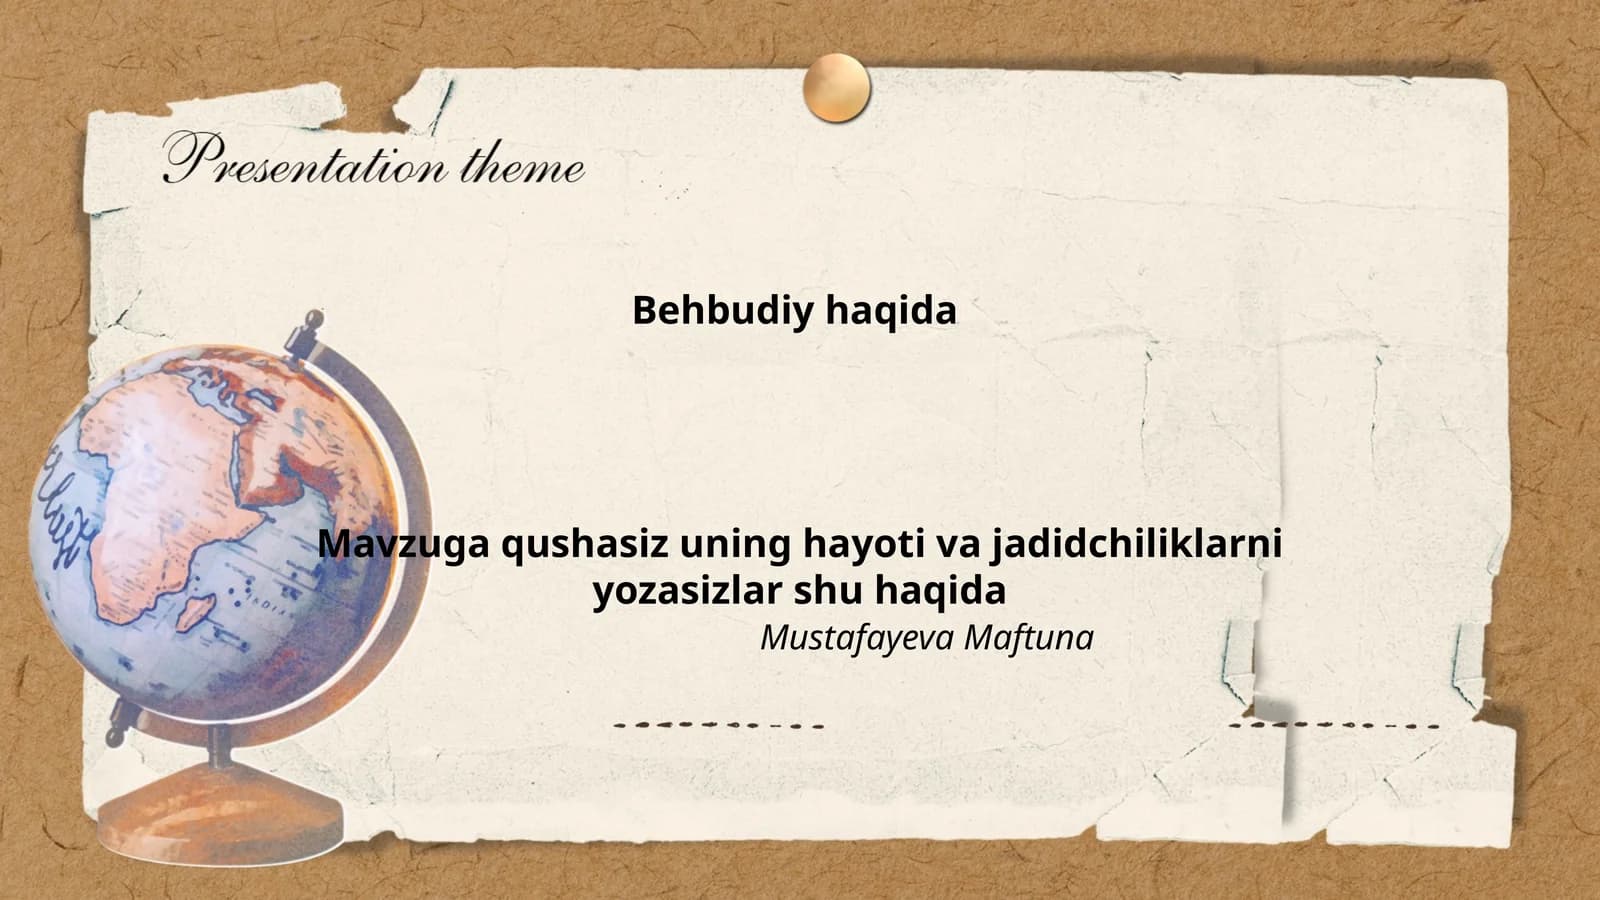 Presentation theme
Behbudiy haqida
Mavzuga qushasiz uning hayoti va jadidchiliklarni
yozasizlar shu haqida
Mustafayeva Maftuna
INDIAN